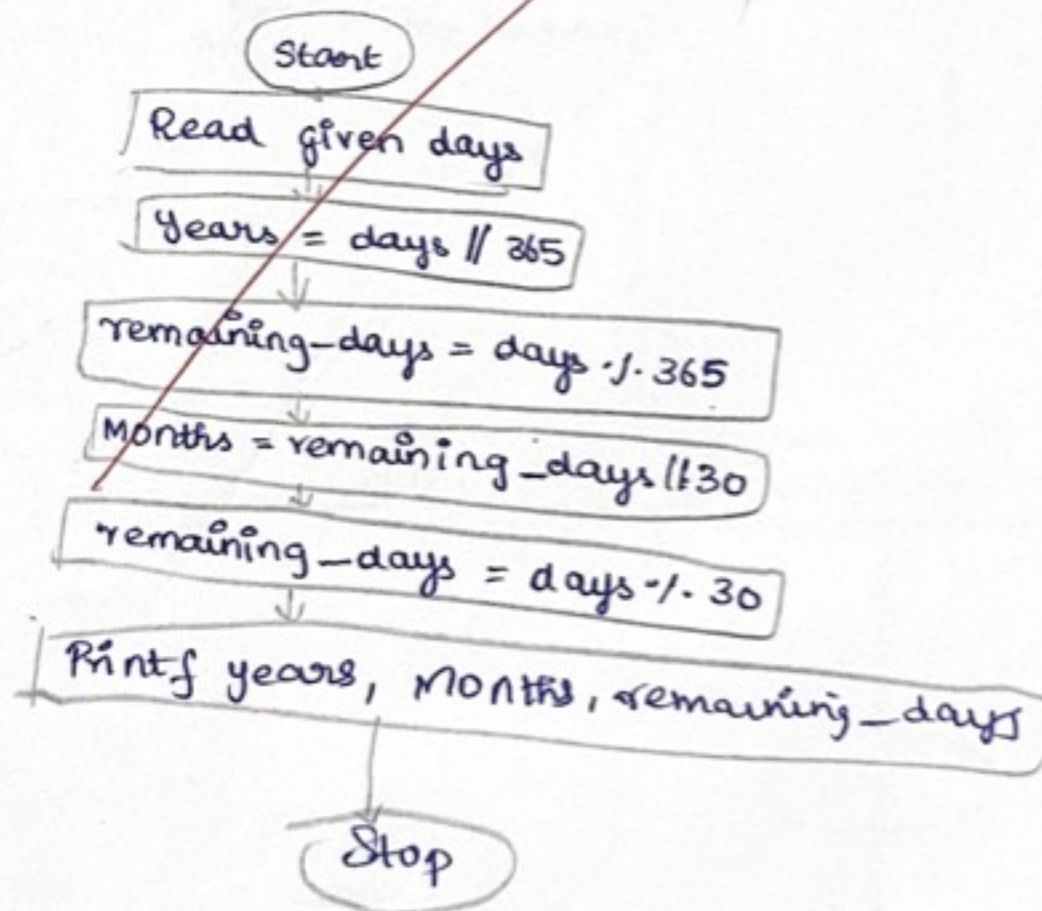 Start
Read given days
Years = days // 365
remaining_days = days % 365
Months = remaining_days // 30
remaining_days = days % 30
Printf years, Months, remaining_days
Stop